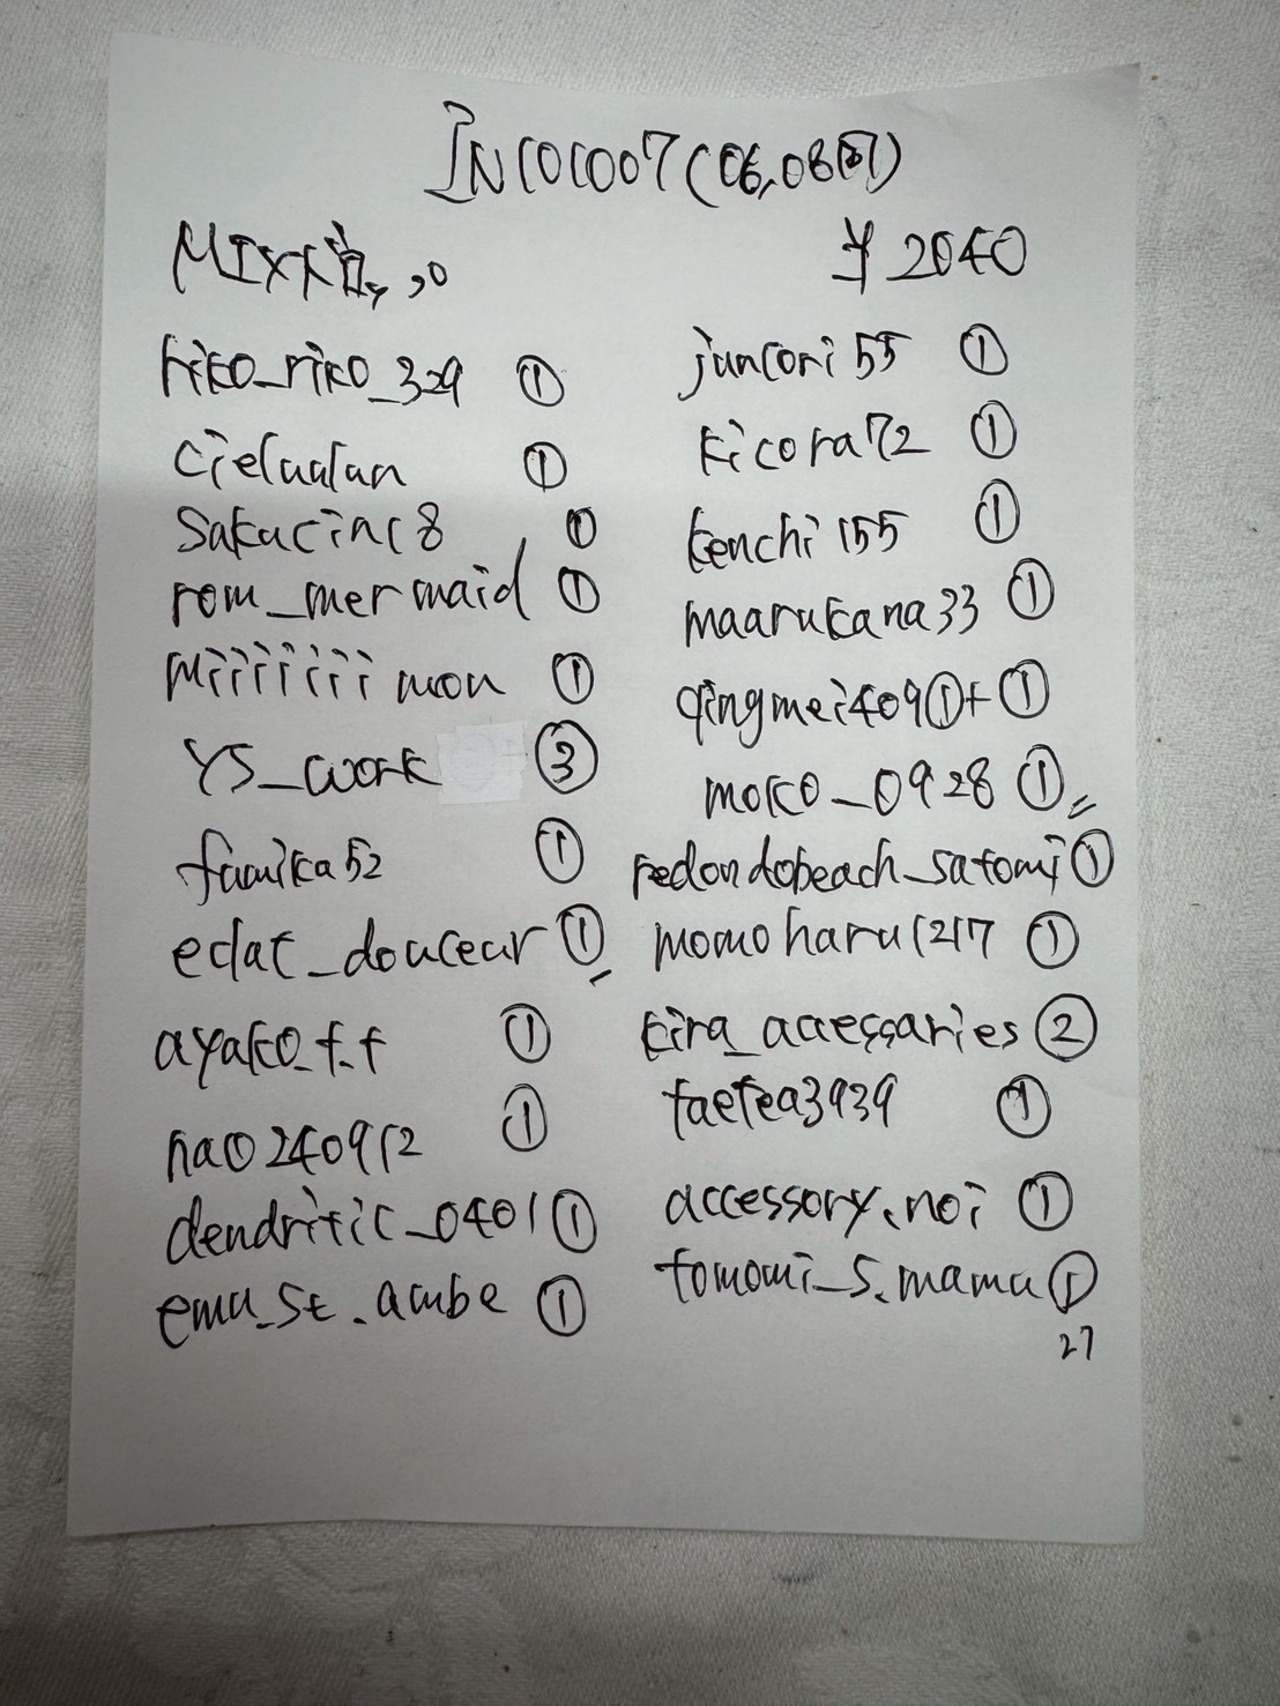 IN101007(06,08图)
MIX大直 , 0
¥2040
hiko_riko_329 ①
cielualun ①
sakucinc8 ①
rom_mermaid ①
miiiiiii mon ①
YS_work ③
fumika52 ①
eclat_douceur ①
ayako_t.t ①
nao240912 ①
dendritic_0401 ①
emu_st.ambe ①
juncori55 ①
kicora72 ①
kenchi155 ①
maarukana33 ①
qingmei409①+①
moko_0928 ①
redondobeach_satomi ①
momoharu1217 ①
kira_accessaries ②
taetea3939 ①
accessory.noi ①
tomomi_s.mama ①
27